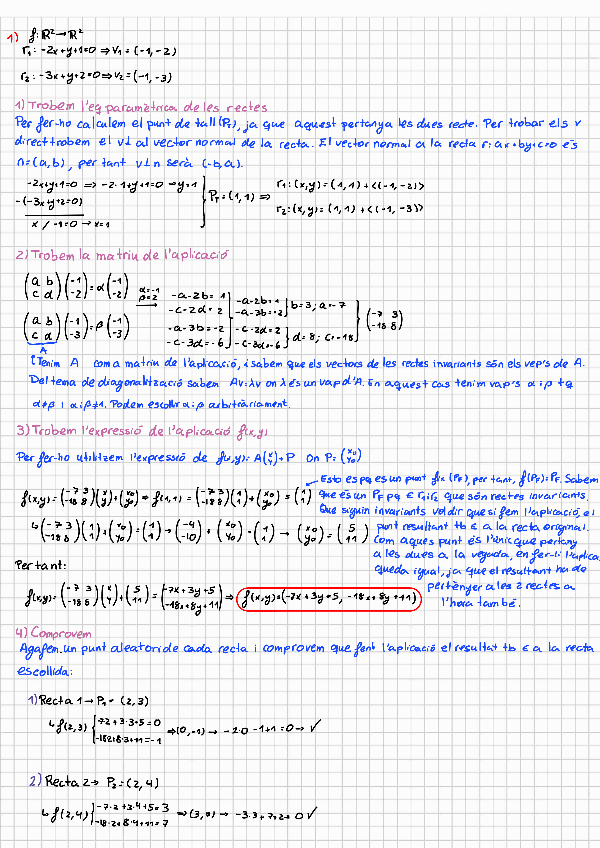 1) f: ℝ²→ℝ²
r₁: -2x+y+1=0 ⇒ v₁ = (-1,-2)
r₂: -3x+y+2=0 ⇒ v₂ = (-1,-3)
1) Trobem l'eq paramètrica de les rectes
Per fer-ho calculem el punt de tall (P_F), ja que aquest pertanya les dues recte. Per trobar els v
direct trobem el v⊥ al vector normal de la recta. El vector normal a la recta r: ax+by+c=0 és
n=(a,b), per tant v⊥n serà (-b,a).
-2x+y+1=0 ⇒ -2·1+y+1=0 ⇒ y=1
-(-3x+y+2=0)
x / -1=0 → x=1
P_F = (1,1) ⇒
r₁: (x,y) = (1,1) + <(-1,-2)>
r₂: (x,y) = (1,1) + <(-1,-3)>
2) Trobem la matriu de l'aplicació
(a b / c d)(-1 / -2) = α(-1 / -2)
(a b / c d)(-1 / -3) = β(-1 / -3)
A
α=-1
β=2
→
-a-2b = 1
-c-2d = 2
-a-3b = -2
-c-3d = -6
-a-2b = 1
-a-3b = -2
b=3; a=-7
-c-2d = 2
-c-3d = -6
d=8; c=-18
(-7 3 / -18 8)
Tenim A com a matriu de l'aplicació, i sabem que els vectors de les rectes invariants són els vep's de A.
Del tema de diagonalització sabem Av=λv on λ és un vap d'A. En aquest cas tenim vap's α i β tq
α≠β i α i β≠1. Podem escollir α i β arbitràriament.
3) Trobem l'expressió de l'aplicació f(x,y)
Per fer-ho utilitzem l'expressió de f(x,y) = A(x / y) + P On P = (x₀ / y₀)
f(x,y) = (-7 3 / -18 8)(x / y) + (x₀ / y₀) ⇒ f(1,1) = (-7 3 / -18 8)(1 / 1) + (x₀ / y₀) = (1 / 1)
↳ (-7 3 / -18 8)(1 / 1) + (x₀ / y₀) = (1 / 1) → (-4 / -10) + (x₀ / y₀) = (1 / 1) → (x₀ / y₀) = (5 / 11)
Esto es pq es un punt fix (P_F), per tant, f(P_F)=P_F. Sabem
que és un P_F pq ∈ r₁ i r₂ que són rectes invariants.
Que siguin invariants vol dir que si fem l'aplicació, el
punt resultant tb ∈ a la recta original.
Com aquest punt és l'únic que pertany
a les dues a la vegada, en fer-li l'aplica.
queda igual, ja que el resultant ha de
pertànyer a les 2 rectes a
l'hora també.
Per tant:
f(x,y) = (-7 3 / -18 8)(x / y) + (5 / 11) = (-7x+3y+5 / -18x+8y+11) ⇒ f(x,y)=(-7x+3y+5, -18x+8y+11)
4) Comprovem
Agafem un punt aleatori de cada recta i comprovem que fent l'aplicació el resultat tb ∈ a la recta
escollida:
1) Recta 1 → P₁ = (2,3)
↳ f(2,3) { -7·2+3·3+5=0
-18·2+8·3+11=-1
⇒ (0,-1) → -2·0-1+1=0 → ✓
2) Recta 2 → P₂ = (2,4)
↳ f(2,4) { -7·2+3·4+5=3
-18·2+8·4+11=7
⇒ (3,7) → -3·3+7+2=0 ✓